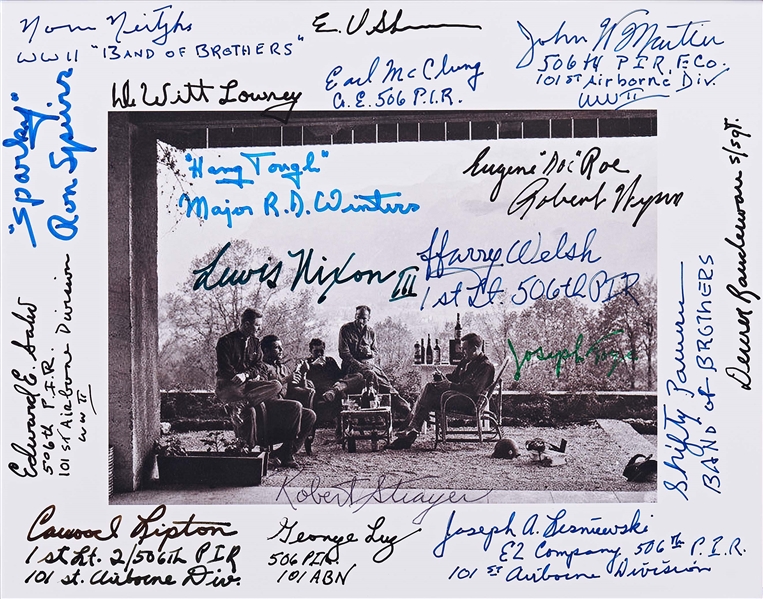 WWII "BAND OF BROTHERS"
John W Martin
506th P.I.R. F. Co.
101st Airborne Div.
WW II
Earl McClung
506 P.I.R.
De Witt Lowrey
"Sparky"
Ron Speirs
"Hang Tough"
Major R.D. Winters
Eugene "Doc" Roe
Robert Wynn
Lewis Nixon III
Harry Welsh
1st Lt. 506th PIR
Joseph
S/Sgt.
Edward E.
506th P.I.R.
101st Airborne Division
WW II
Shifty
BAND of BROTHERS
Robert Strayer
Carwood Lipton
1st Lt. 2/506th PIR
101 st. Airborne Div.
George Luz
506 PIR.
101 ABN
Joseph A. Lesniewski
E2 Company 506th P.I.R.
101st Airborne Division